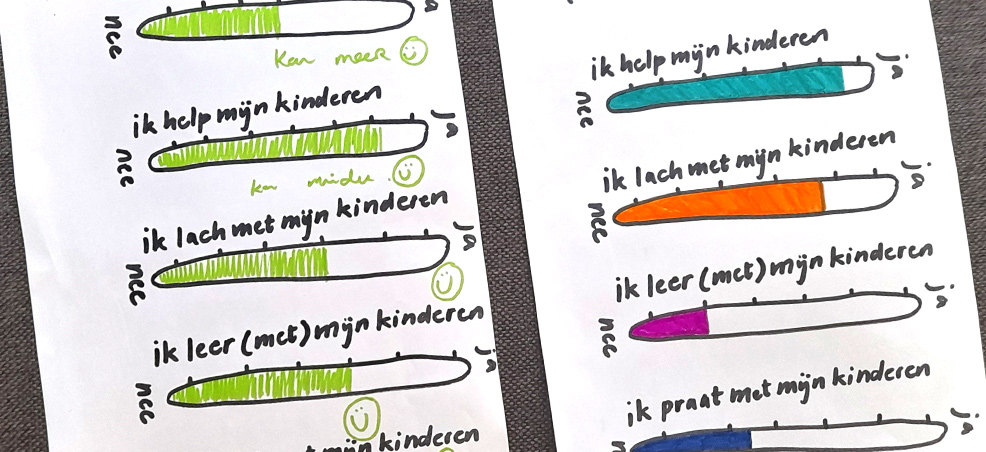 nee
ja
kan meer
ik help mijn kinderen
nee
ja
kan minder
ik lach met mijn kinderen
nee
ja
ik leer (met) mijn kinderen
nee
ja
mijn kinderen
ik help mijn kinderen
nee
ja
ik lach met mijn kinderen
nee
ja
ik leer (met) mijn kinderen
nee
ja
ik praat met mijn kinderen
ja